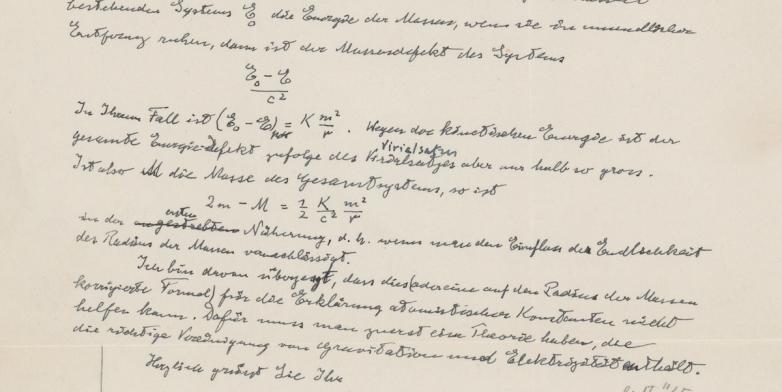 bestehenden Systems ℰ₀ die Energie der Massen, wenn sie in unendlicher
Entfernung ruhen, dann ist der Massendefekt des Systems
(ℰ₀ − ℰ)/c²
In Ihrem Fall ist (ℰ₀ − ℰ)pot = K m²/r . Wegen der kinetischen Energie ist der
gesamte Energie-Defekt zufolge des Virialsatzes aber nur halb so gross.
Virialsatzes
Ist also M die Masse des Gesamtsystems, so ist
2m − M = 1/2 K/c² m²/r
in der ersten Näherung, d. h. wenn man den Einfluss der Endlichkeit
des Radius der Massen vernachlässigt.
Ich bin davon überzeugt, dass dies (oder eine auf den Radius der Massen
korrigierte Formel) für die Erklärung atomistischer Konstanten nicht
helfen kann. Dafür muss man zuerst eine Theorie haben, die
die richtige Vereinigung von Gravitation und Elektrizität enthält.
Herzlich grüsst Sie Ihr